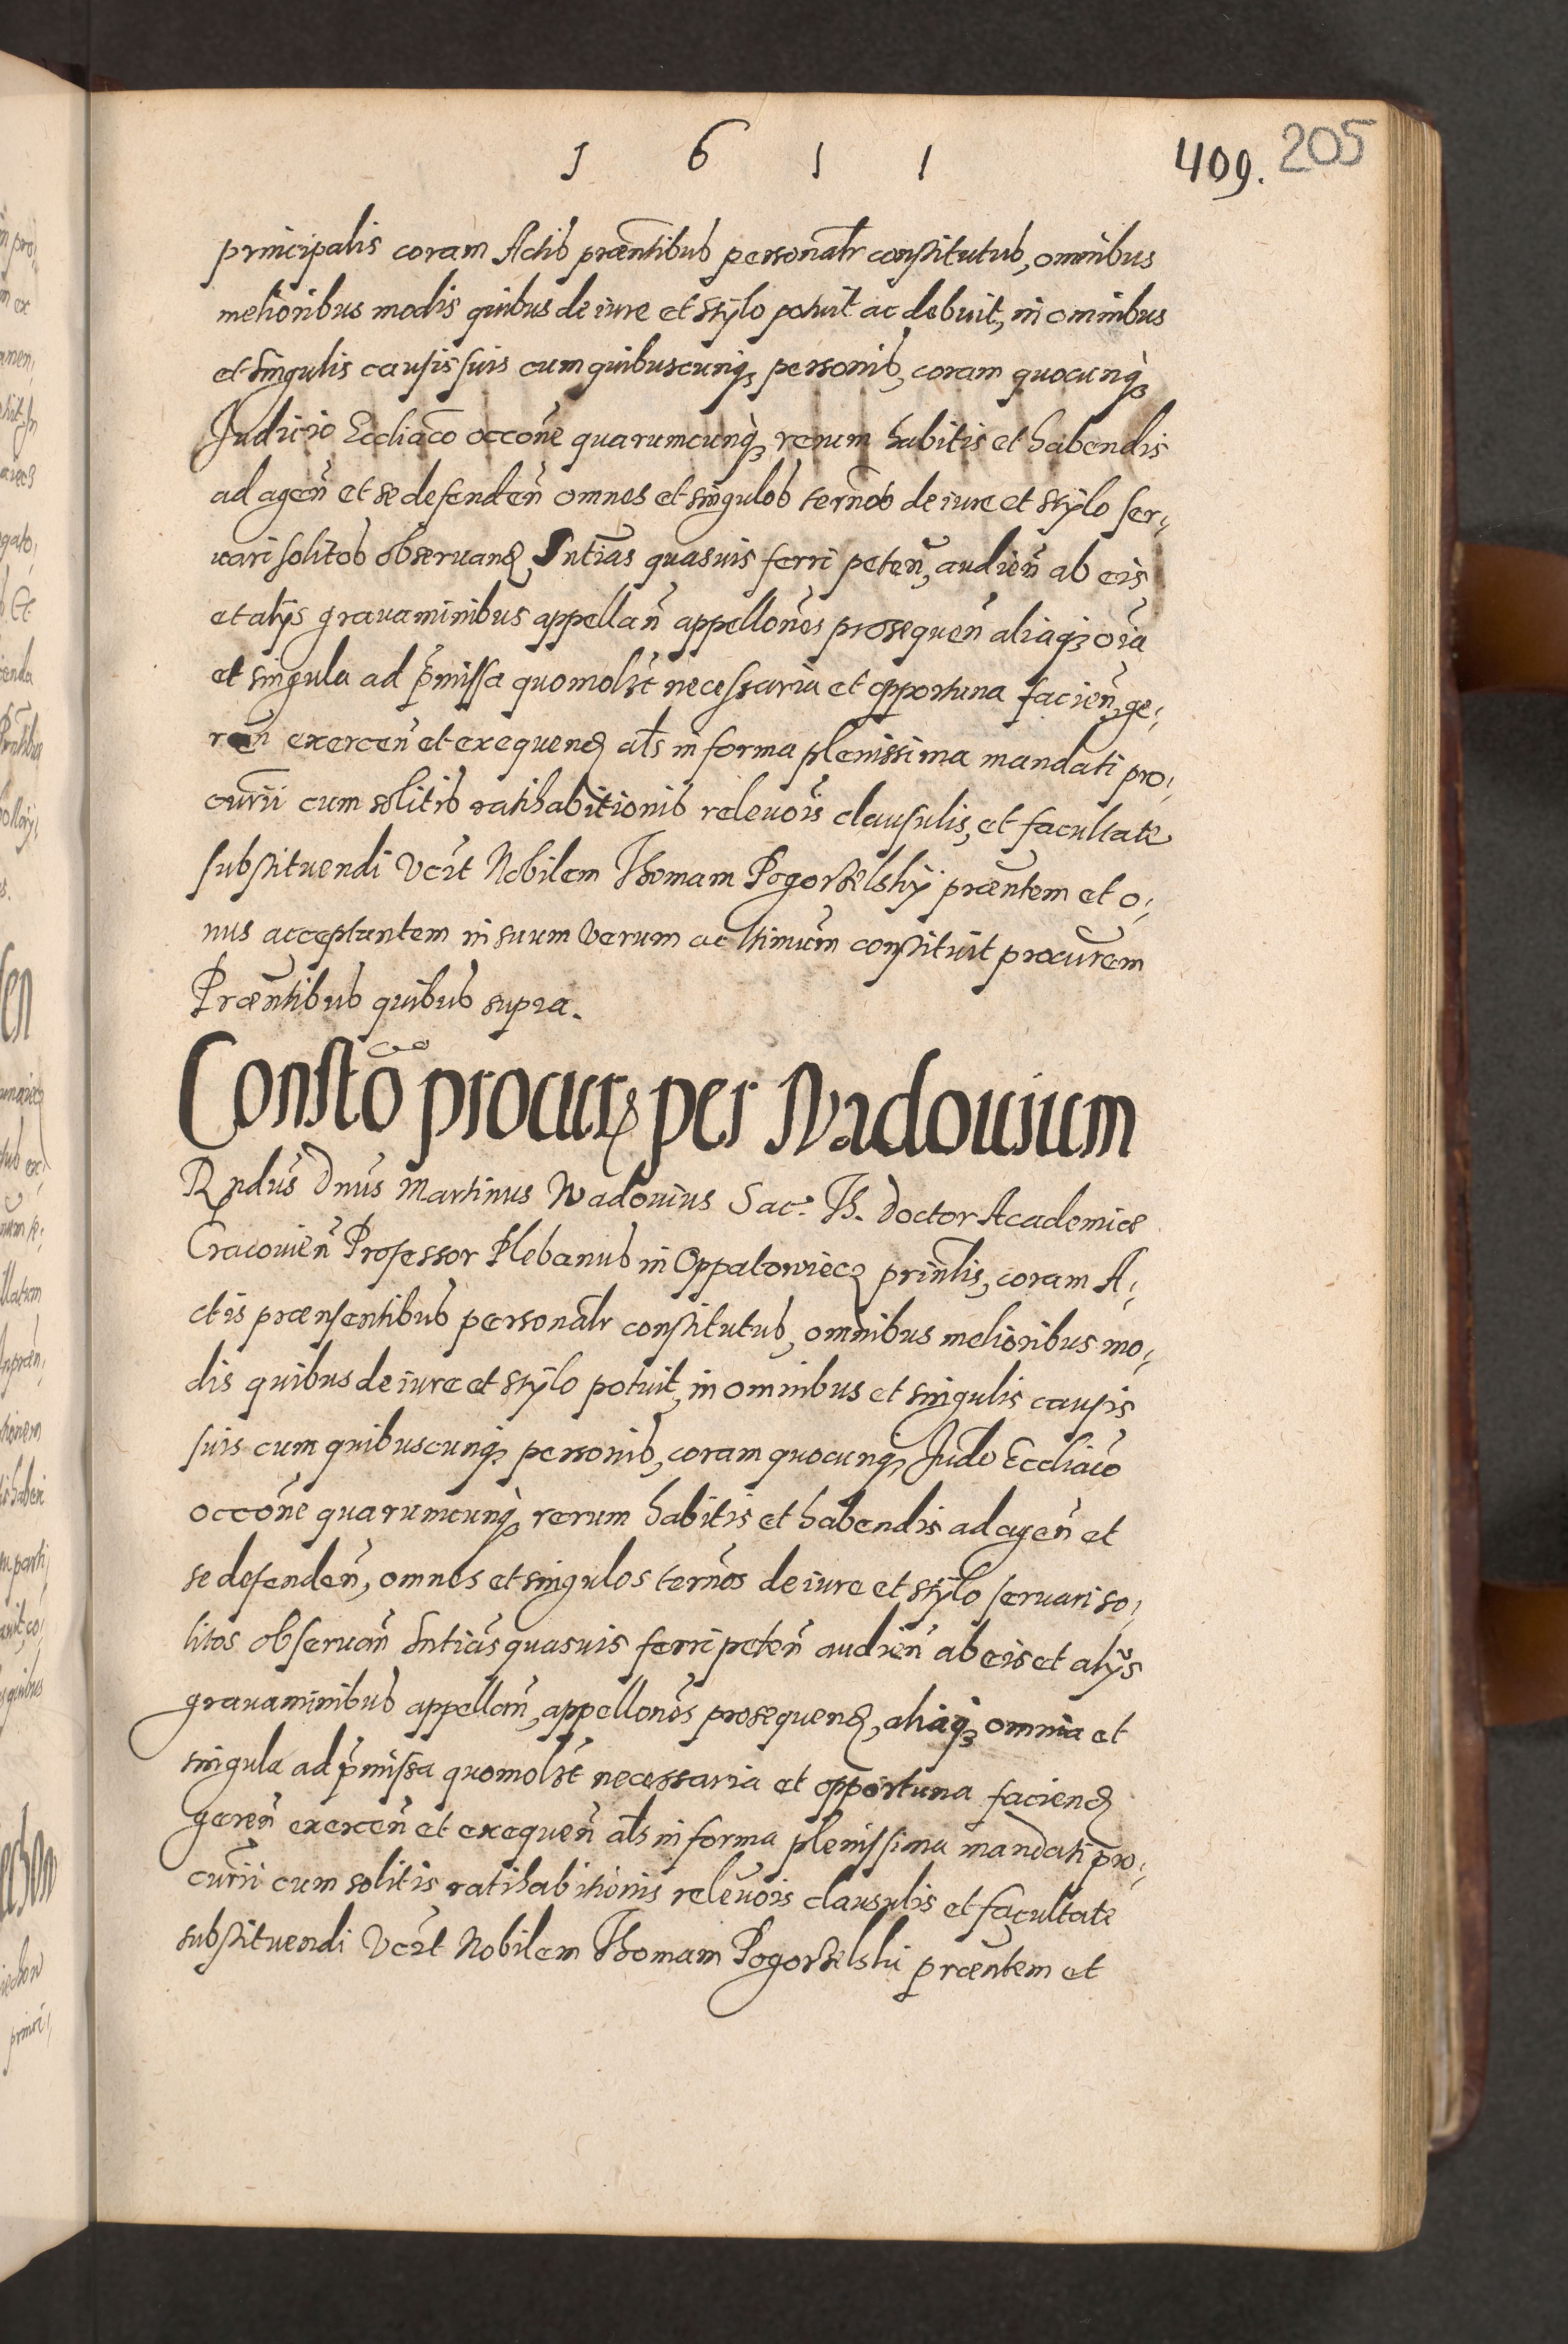 1 6 1 1 409. 205
principalis coram Actis præntibus personalr constitutus, omnibus
melioribus modis quibus de iure et stylo potuit ac debuit, in omnibus
et singulis causis suis cum quibuscunq₃ personis, coram quocunq₃
Judicio Eccliaco occone quarumcunq₃ rerum habitis et habendis
ad agen̄ et se defenden̄ omnes et singulos termos de iure et stylo ser,
uari solitos obseruand, Sntias quasuis ferri peten̄, audien̄ ab eis
et alijs grauaminibus appellan̄ appellones prosequen̄ aliaq₃ oia
et singula ad pmissa quomolbt necessaria et opportuna facien̄, ge,
ren̄ exercen̄ et exequend als in forma plenissima mandati pro,
curii cum solitis ratihabitionis releuois clausulis, et facultate
substituendi Vert Nobilem Thomam Pogorzelsky præntem et o,
nus acceptantem in suum verum ac ltimum constituit procurem
Præntibus quibus supra.
Constō procur per Wadouium
Rndus Dnus Martinus Wadouius Sac. Th. Doctor Academiæ
Cracouien̄ Professor Plebanus in Oppatowiec prinlis, coram A,
ctis prænsentibus personalr constitutus, omnibus melioribus mo,
dis quibus de iure et stylo potuit, in omnibus et singulis causis
suis cum quibuscunq₃ personis, coram quocunq₃ Judo Eccliaco
occone quarumcunq₃ rerum habitis et habendis ad agen̄ et
se defenden̄, omnes et singulos ternos de iure et stylo seruari so,
litos obseruan̄ Sntias quasuis ferri peten̄ audien̄ ab eis et alijs
grauaminibus appellan̄, appellones prosequend, aliaq₃ omnia et
singula ad pmissa quomolbt necessaria et opportuna faciend
geren̄ exercen̄ et exequen̄ als in forma plenissima mandati pro,
curii cum solitis ratihabitionis releuois clausulis et facultate
substituendi Vert Nobilem Thomam Pogorzelski præntem et